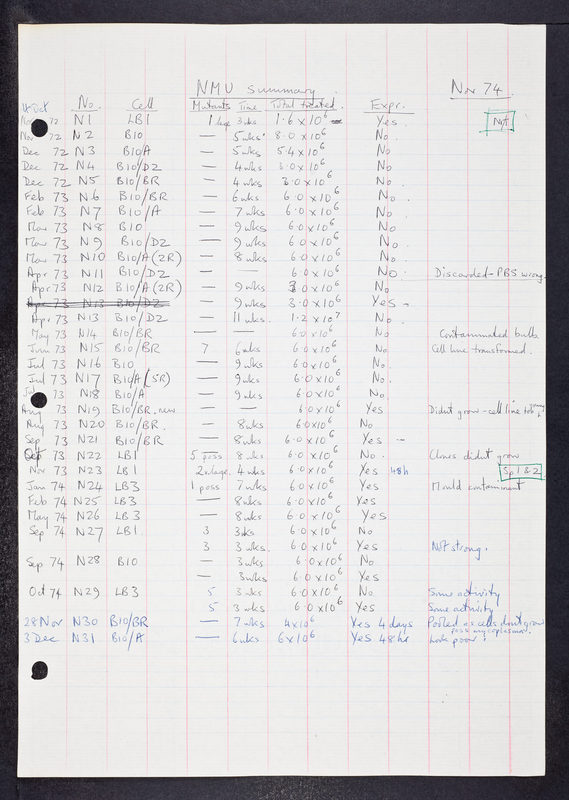 NMU Summary. Nov 74
No. Cell Mutants Time Total treated. Expr.
72 N1 LB1 1 large 3wks 1.6 x 10⁶ Yes NyA
Nov 72 N2 B10 — 5wks 8.0 x 10⁶ No.
Dec 72 N3 B10/A — 5wks 5.4 x 10⁶ No
Dec 72 N4 B10/D2 — 4wks 3.0 x 10⁶ No
Dec 72 N5 B10/BR — 4wks 3.0 x 10⁶ No.
Feb 73 N6 B10/BR — 6wks 6.0 x 10⁶ No.
Feb 73 N7 B10/A — 7wks 6.0 x 10⁶ No
Mar 73 N8 B10 — 9wks 6.0 x 10⁶ No.
Mar 73 N9 B10/D2 — 9wks 6.0 x 10⁶ No.
Mar 73 N10 B10/A(2R) — 8wks 6.0 x 10⁶ No.
Apr 73 N11 B10/D2 — — 6.0 x 10⁶ No. Discarded - PBS wrong.
Apr 73 N12 B10/A(2R) — 9wks 3.0 x 10⁶ No
Apr 73 N13 B10/D2 — 9wks 3.0 x 10⁶ Yes -
Apr 73 N13 B10/D2 — 11wks. 1.2 x 10⁷ No.
May 73 N14 B10/BR — — 6.0 x 10⁶ No Contaminated bulb.
Jun 73 N15 B10/BR 7 6wks 6.0 x 10⁶ No Cell line transformed.
Jul 73 N16 B10 — 9wks 6.0 x 10⁶ No
Jul 73 N17 B10/A(5R) — 9wks 6.0 x 10⁶ No.
Jul 73 N18 B10/A — 9wks 6.0 x 10⁶ No
Aug 73 N19 B10/BR.new — — 6.0 x 10⁶ Yes Didnt grow - cell line too young
Aug 73 N20 B10/BR. — 8wks 6.0 x 10⁶ No
Sep 73 N21 B10/BR — 8wks 6.0 x 10⁶ Yes -
Oct 73 N22 LB1 5 poss 8wks 6.0 x 10⁶ No. Clones didnt grow
Nov 73 N23 LB1 2 v.large. 4wks 6.0 x 10⁶ Yes 48h Sp 1 & 2
Jan 74 N24 LB3 1 poss 7wks 6.0 x 10⁶ Yes Mould contaminant
Feb 74 N25 LB3 — 8wks 6.0 x 10⁶ Yes
May 74 N26 LB3 — 8wks 6.0 x 10⁶ Yes
Sep 74 N27 LB1. 3 3wks 6.0 x 10⁶ No
3 3wks. 6.0 x 10⁶ Yes Not strong.
Sep 74 N28 B10 — 3wks 6.0 x 10⁶ No
— 3wks 6.0 x 10⁶ Yes
Oct 74 N29 LB3 5 3wks 6.0 x 10⁶ No Some activity
5 3wks 6.0 x 10⁶ Yes Some activity
28 Nov N30 B10/BR — 7wks 4 x 10⁶ Yes 4 days Pooled as cells didnt grow
poss mycoplasmas.
3 Dec N31 B10/A — 6wks 6 x 10⁶ Yes 48hr Look poor!